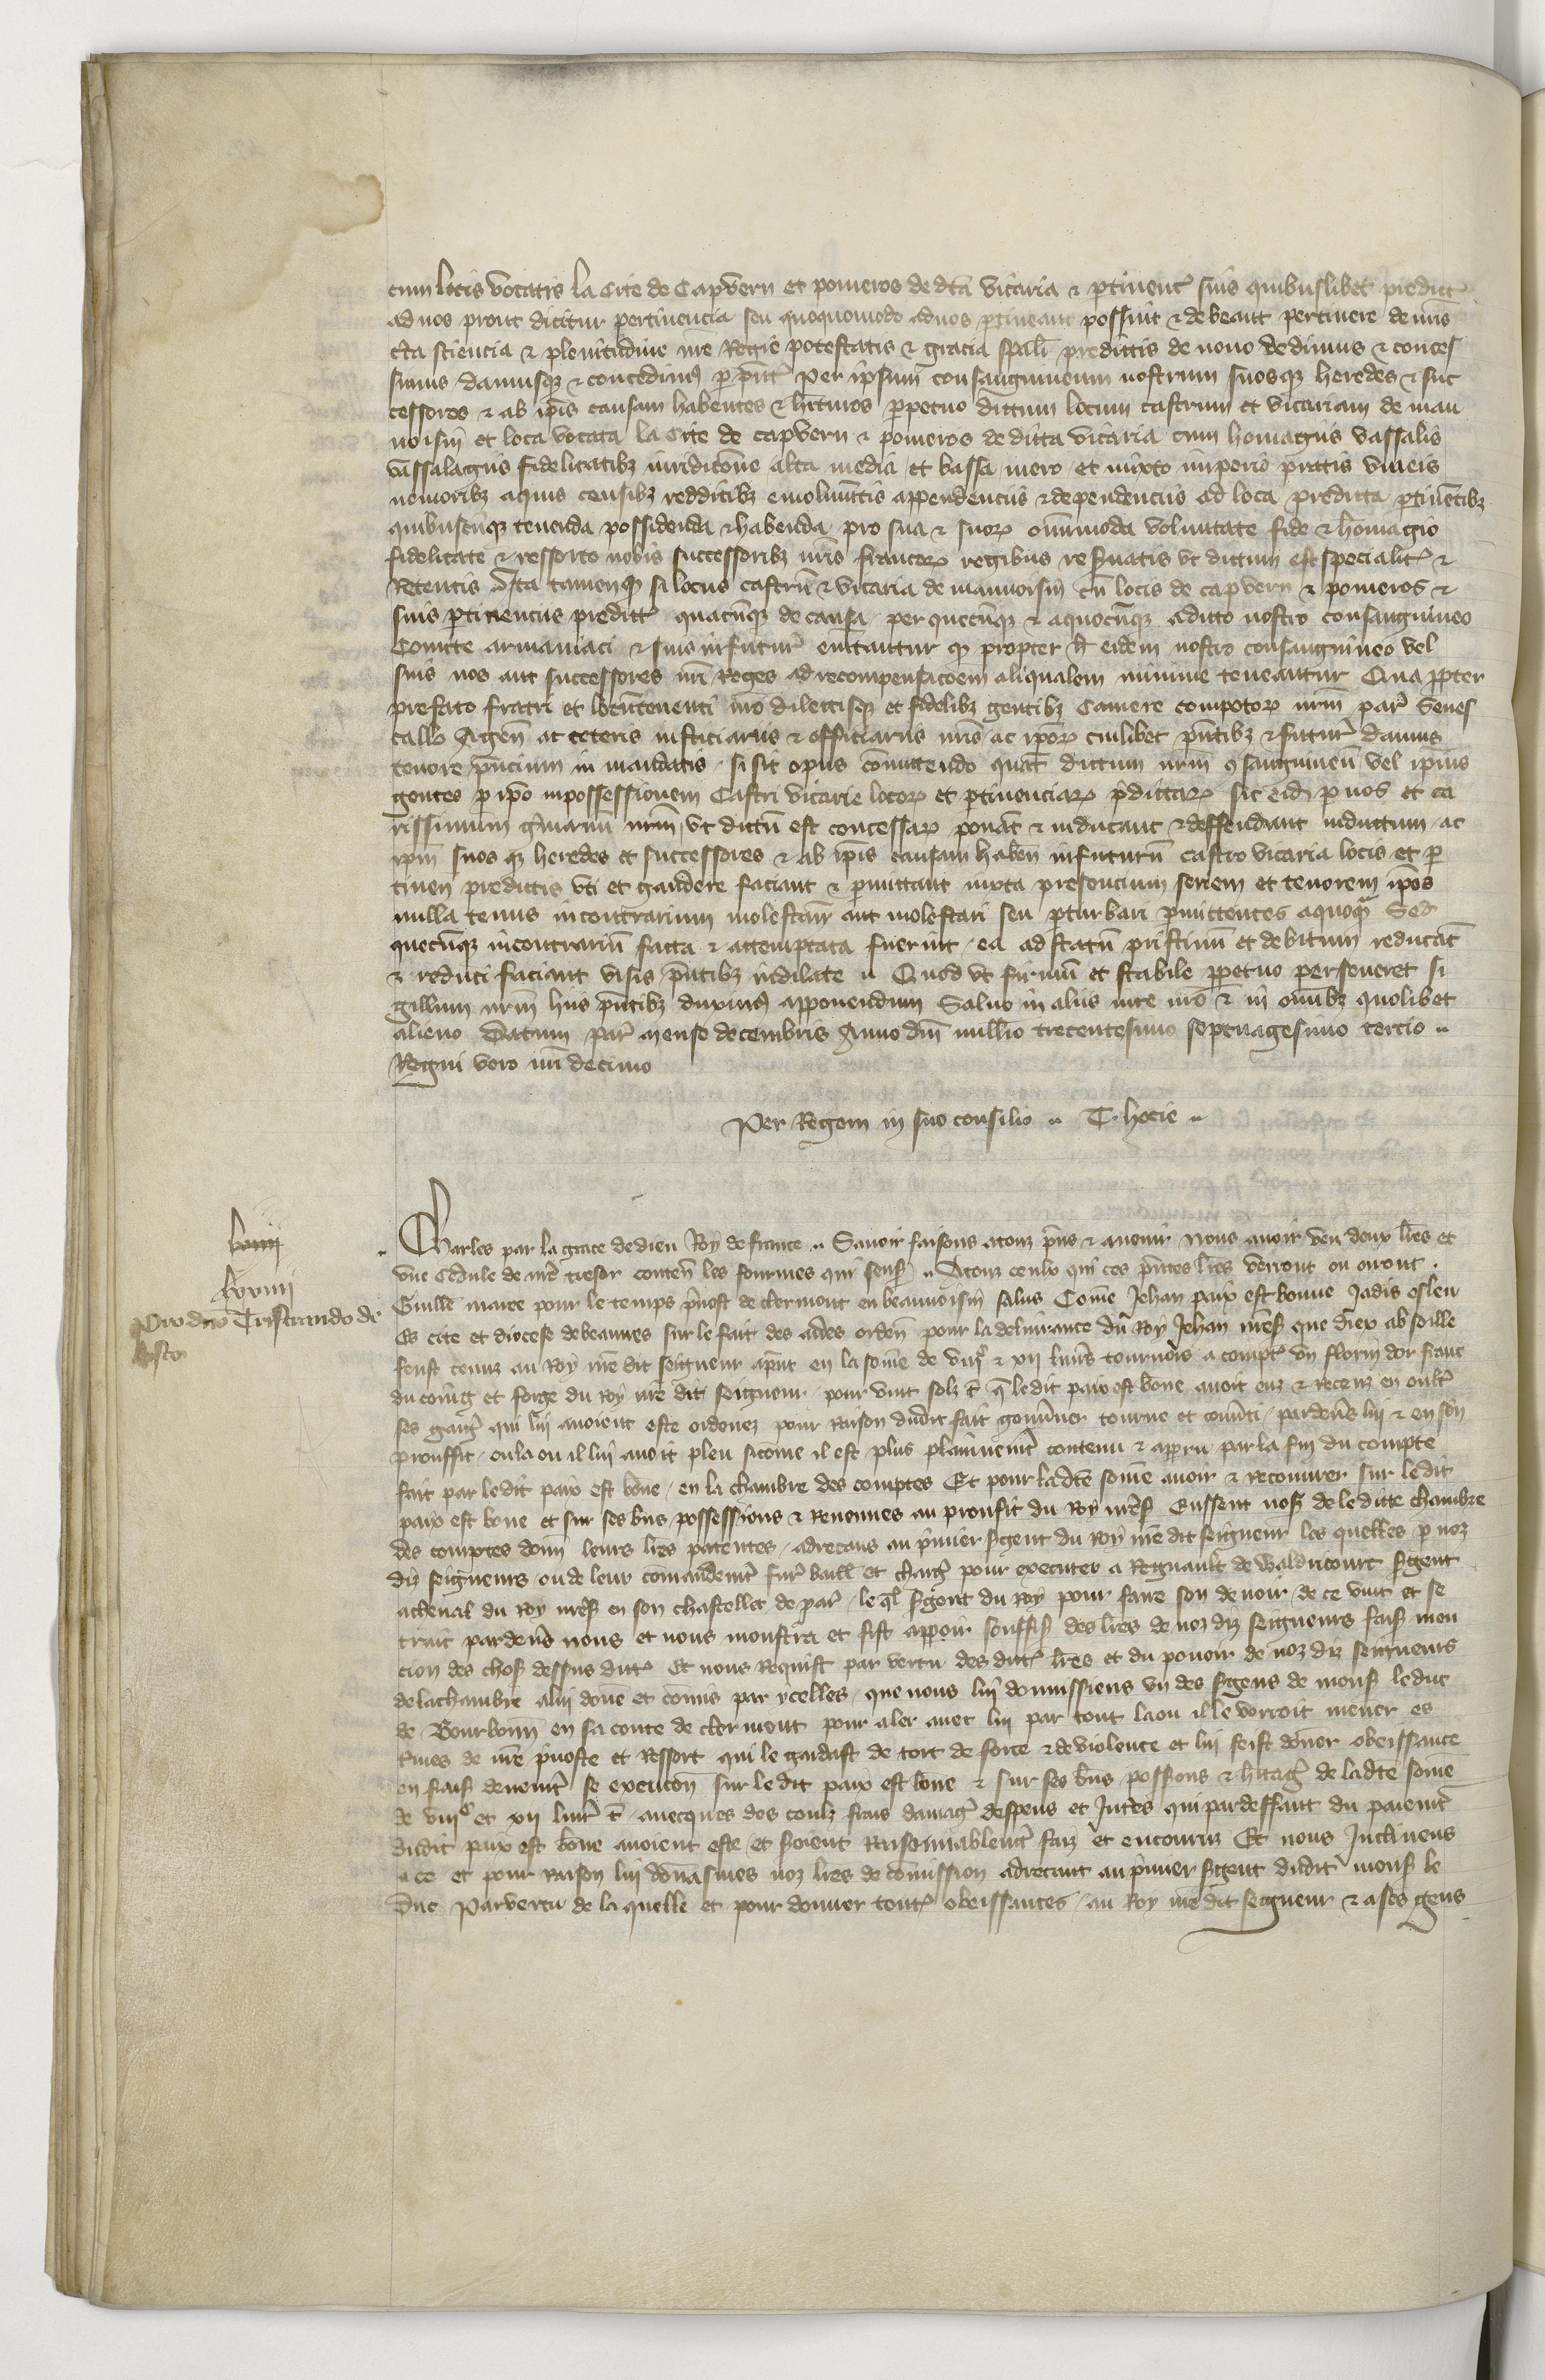 cum locis vocatis la Cite de Capvern et pomeros de dcã vicaria & ptinenť suis quibuslibet predicť
ad nos prout dicitur pertinencia seu quoquomodo ad nos ptineant possint & debeant pertinere de nris
cta sciencia & plenitudine nre Regie potestatis & gracia spali predictis de novo dedimus & conces
simus damusqz & concedimus p pñť per ipsum consanguineum nostrum suosqz heredes & suc
cessores & ab ipis causam habentes & hituros ppetuo dictum locum castrum et vicariam de mau
uoisin et loca vocata la Cite de capvern & pomeros de dicta vicaria cum homagiis vassalis
vassalagiis fidelitatibz iuridicõne alta media et bassa mero et mixto imperio pratis vineis
nemoribz aquis censibz redditibz emolumtis appendenciis & dependenciis ad loca predicta ptinetibz
quibuscũqz tenenda possidenda & habenda pro sua & suoꝝ omnimoda voluntate fide & homagio
fidelitate & ressorto nobis successoribz nris francoꝝ regibus reseruatis vt dictum est specialiť &
Retentis Ita tamen qz si locus castrũ & vicaria de mauuoisin cũ locis de capvern & pomeros &
suis ptinenciis predicť quacũqz de causa per quecũqz & a quocũqz a dicto nostro consanguineo
Comite armaniaci & suis infuturũ euitcantur qz propter h eidem nostro consanguineo vel
suis nos aut successores nri Reges ad recompensacoem aliqualem minime teneantur Qua ppter
prefato fratri et locũtenenti nro dilectisqz et fidelibz gentibz Camere compotoꝝ nrm par Senes
callo Agen ac ceteris iusticiariis & officiariis nris ac ipoꝝ cuilibet pñtibz & futur damus
tenore pñcium in mandatis si sit opus cõmittendo quat dictum nrm 9sanguineũ vel ipius
gentes p ipo in possessionem Castri vicarie locoꝝ et ptinenciaꝝ pdictaꝝ sic eid p nos et ca
rissimum gmanũ nrm vt dictũ est concessaꝝ ponãt & inducant & deffendant inductum ac
ipm suos qz heredes et successores & ab ipis causam haben infuturũ castro vicaria locis et p
tinen predictis vti et gaudere faciant & pmittant iuxta presencium seriem et tenorem ipos
nulla tenus incontrarium molestant aut molestari seu pturbari pmittentes a quoqz Sed
quecũqz incontrariũ facta & attemptata fuerint ea ad statũ pristinũ et debitum reducãt
& reduci faciant visis pñtibz indilate Quod vt firmũ et stabile ppetuo perseueret si
gillum nrm hiis pñtibz duximus apponendum Saluo in aliis iure nro & in omibz quolibet
alieno Datum par mense decembris Anno dñi millio trecentesimo septuagesimo tercio
Regni vero nri decimo
Per Regem in suo consilio T. hocie
Charles par la grace de dieu Roy de france Sauoir faisons a touz pñs & auenir nous auoir veu deux lres et
vne Cedule de nre tresor conteñ les fourmes qui sensuit A touz ceulx qui ces pñtes lres verront ou orront
Guille maree pour le temps preuost de clermont en beauuoisin salus Come Jehan paix est bonne Jadis esleu
Es cite et diocese de beauues sur le fait des aides orden pour la deliurance du Roy Jehan nres que diex absoille
feust tenuz au Roy nre dit seigneur apñt en la some de viijxx & xij liurs tournois a compt vn florin dor franc
du coing et forge du Roy nre dit seigneur pour vint solz t q le dit paix est bone auoit euz & Receuz en oult
ses gaig qui lui auoient este ordonez pour Raison dudit fait gouuner tourne et conuti pardeus lui & en son
prouffit ou la ou il lui auoit pleu sicome il est plus plainnemt contenu & apparu par la fin du compte
fait par le dit paix est bone en la chambre des comptes Et pour la dte some auoir & recouurer sur le dit
paix est bone et sur ses bñs possessions & Reuenues au proufit du Roy nres Eussent nosse de le ditte chambre
des comptes donn leurs lres patentes adrecans au pmier sgent du Roy nre dit seigneur les quelles p noz
diz seigneurs ou de leur comandemt fur baill et charg pour executer a Regnault de Waldricourt sgent
acheual du Roy nres en son chastellet de par le ql sgent du Roy pour faire son deuoir de ce vint et se
trait pardeus nous et nous monstra et fist apparoir souffis des lres de noz diz seigneurs fais men
cion des chos dessus ditt Et nous Requist par vertu des ditt lres et du pouoir de noz diz seigneurs
de la chambre a lui doné et comis par ycelles que nous lui donnissiens vn des sgens de mons le duc
de Bourbonn en sa conte de clermont pour aler auec lui par tout la ou il le vorroit mener es
tmes de nre puoste et Ressort qui le gardast de tort de force & de violence et lui feist doner obeissance
en fais deuemt se execucon sur le dit paix est bone & sur ses bñs possions & hitag de la dte some
de viijxx et xij liur t auecques des coulz frais damag despens et Intres qui par deffaut du paiemt
dudit paix est bone auoient este et soient Raisonnablemt faiz et encouruz Et nous Inclinens
a ce et pour Raison lui donasmes noz lres de comission adrecant au pmier sgent dudit mons le
Duc Par vertu de la quelle et pour donner tout obeissances au Roy nre dit seigneur & a ses gens
lxviij
Pro dno Tristrando de
bosco